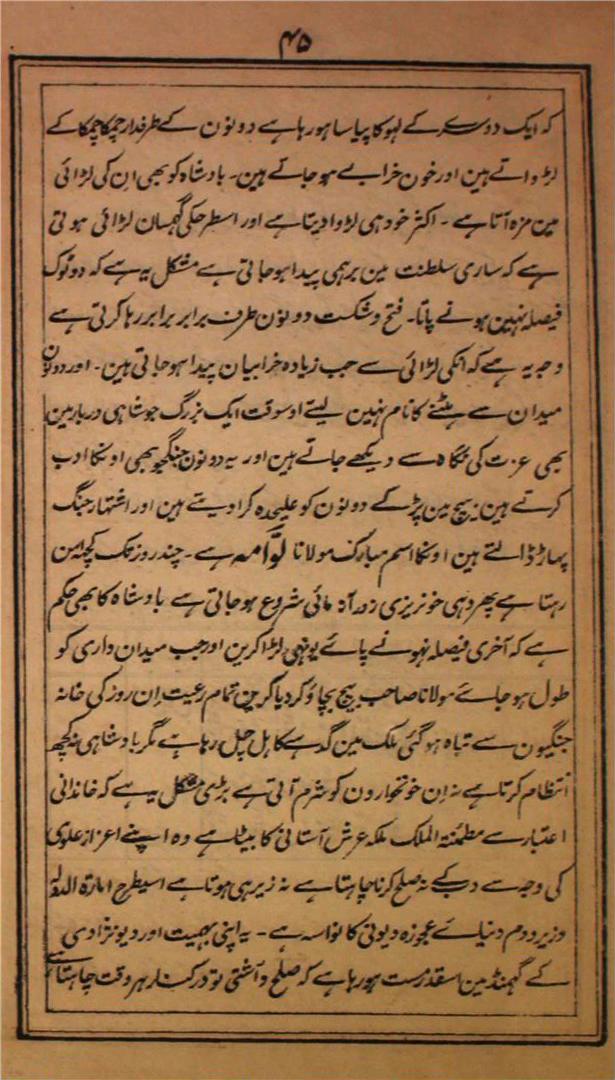 ۴۵
کہ ایک دوسرے کے لہو کا پیاسا ہو رہا ہے دونون کے طرفدار چمکا چمکا کے
لڑواتے ہین اور خون خرابے ہو جاتے ہین۔ بادشاہ کو بھی ان کی لڑائی
مین مزہ آتا ہے۔ اکثر خود ہی لڑوا دیتا ہے اور اسطرحکی گھمسان لڑائی ہوتی
ہے کہ ساری سلطنت مین برہمی پیدا ہو جاتی ہے مشکل یہ ہے کہ دو ٹوک
فیصلہ نہین ہونے پاتا۔ فتح و شکست دونون طرف برابر برابر رہا کرتی ہے
وجہ یہ ہے کہ انکی لڑائی سے جب زیادہ خرابیان پیدا ہو جاتی ہین۔ اور دونون
میدان سے ہٹنے کا نام نہین لیتے اوسوقت ایک بزرگ جو شاہی دربار مین
بھی عزت کی نگاہ سے دیکھے جاتے ہین اور یہ دونون جنگجو بھی اونکا ادب
کرتے ہین بیچ مین پڑ کے دونون کو علیحدہ کرا دیتے ہین اور اشتہار جنگ
پھاڑ ڈالتے ہین اونکا اسم مبارک مولانا لوّامہ ہے۔ چند روز تک کچھ امن
رہتا ہے پھر وہی خونریزی زور آزمائی شروع ہو جاتی ہے بادشاہ کا بھی حکم
ہے کہ آخری فیصلہ نہونے پائے یونہی لڑا کرین اور جب میدان داری کو
طول ہو جائے مولانا صاحب بیچ بچاؤ کر دیا کرین تمام رعیت ان روز کی خانہ
جنگیون سے تباہ ہو گئی ملک مین گدہے کا ہل چل رہا ہے مگر بادشاہ ہی نہ کچھ
انتظام کرتا ہے نہ ان خونخوارون کو شرم آتی ہے بڑی مشکل یہ ہے کہ خاندانی
اعتبار سے مطمئنۃ الملک ملکہ عرش آستانی کا بیٹا ہے وہ اپنے اعزاز علوی
کی وجہ سے دبکے نہ صلح کرنا چاہتا ہے نہ زیر ہی ہوتا ہے اسیطرح امارۃ الدولہ
وزیر دوم دنیائے عجوزہ دیونی کا نواسہ ہے۔ یہ اپنی بہمیت اور دیو نژادی
کے گھمنڈ مین اسقدر مست ہو رہا ہے کہ صلح و آشتی تو درکنار ہر وقت چاہتا ہے